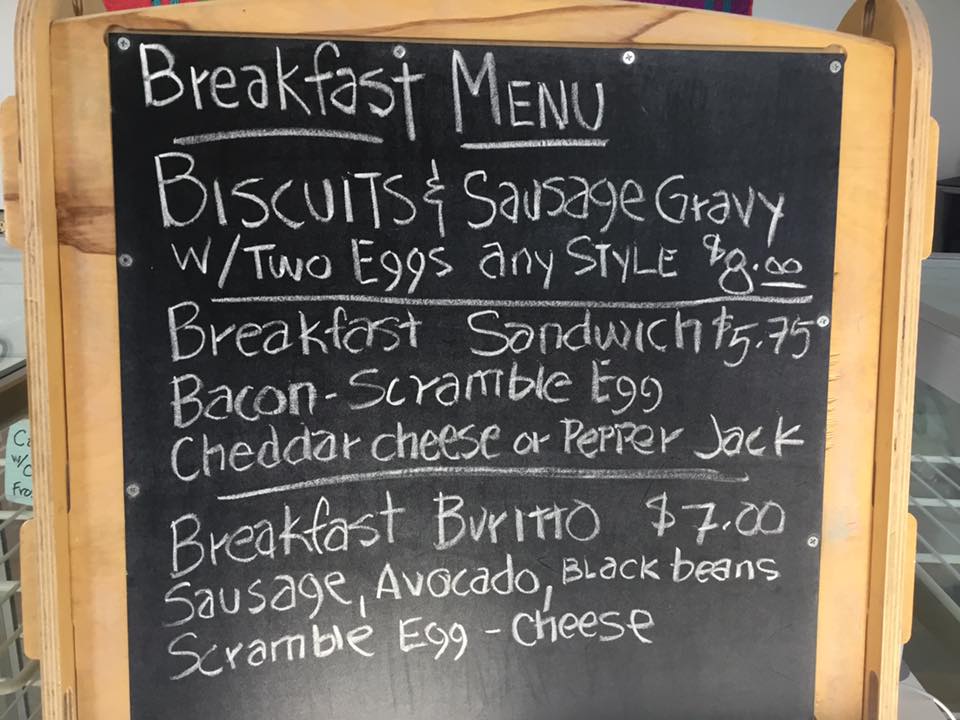 Breakfast MENU
BISCUITS & Sausage Gravy
w/Two Eggs any STYLE $8.00
Breakfast Sandwich $5.75
Bacon - Scramble Egg
Cheddar cheese or Pepper Jack
Breakfast Buritto $7.00
Sausage, Avocado, BLACK beans
Scramble Egg - Cheese